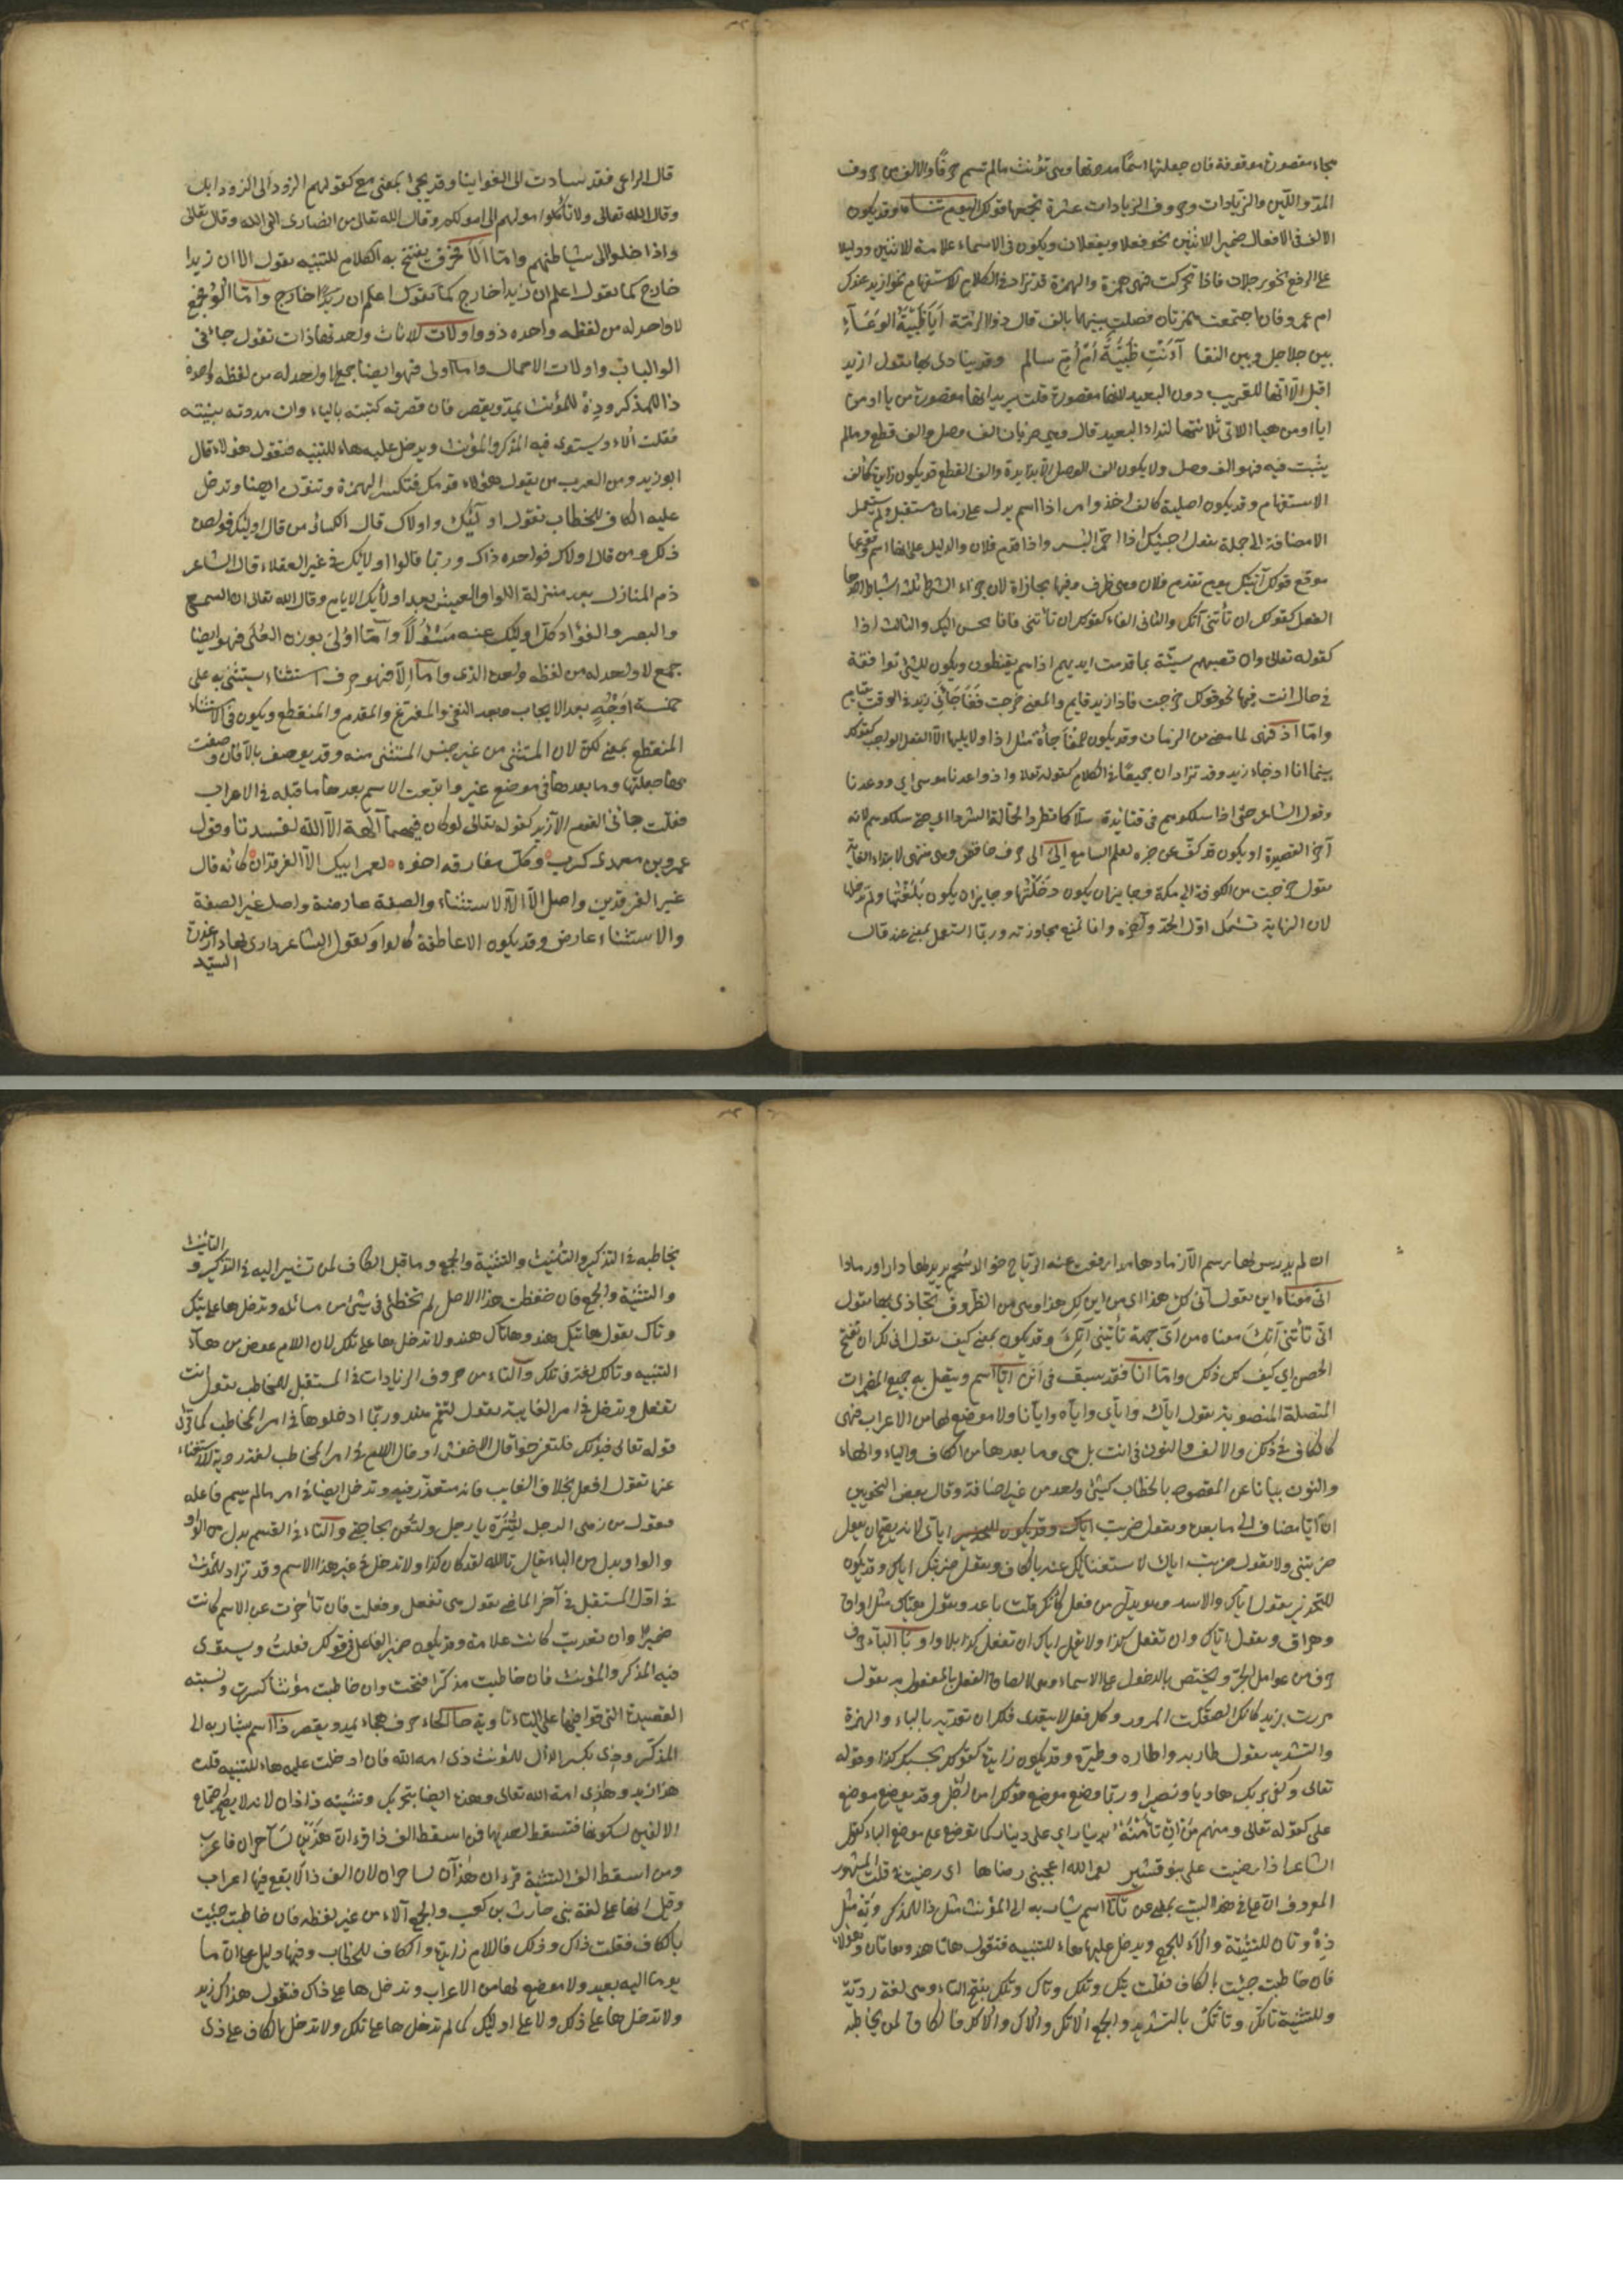 هجاء مقصورة موقوفة فان جعلتها اسمًا مددتها وهي تؤنث ما لم تسم حرفًا والالف من حروف
المد واللين والزيادات وحروف الزيادات عشرة يجمعها قولك اليوم تنساه وقد يكون
الالف في الافعال ضمير الاثنين نحو فعلا ويفعلان ويكون في الاسماء علامة للاثنين ودليلا
على الرفع نحو رجلان فاذا تحركت فهي همزة والهمزة قد تزاد في الكلام للاستفهام نحو ازيد عندك
ام عمرو فان اجتمعت همزتان فصلت بينهما بالف قال ذو الرمة أيا ظبية الوعساء
بين جلاجل وبين النقا آأنت ظبية أم أم سالم وقد ينادى بها تقول ازيد
اقبل الا انها للقريب دون البعيد لانها مقصورة قلت يريد انها مقصورة من يا او من
ايا او من هيا اللاتي ثلاثتها لنداء البعيد قال وهي ضربان الف وصل والف قطع وما لم
يثبت فيه فهو الف وصل ولا يكون الف الوصل الا زايدة والف القطع قد يكون زايدة كالف
الاستفهام وقد يكون اصلية كالف اخذ وامر اذا اسم يدل على زمان مستقبل ولم يستعمل
الا مضافة الى جملة تقول اجيئك اذا احمر البسر واذا قدم فلان والدليل على انها اسم وقوعها
موقع قولك آتيك يوم تقدم فلان وهي ظرف وفيها مجازاة لان جزاء الشرط ثلثة اشياء احدها
الفعل كقولك ان تأتني آتك والثاني الفاء كقولك ان تأتني فانا محسن اليك والثالث اذا
كقوله تعالى وان تصبهم سيئة بما قدمت ايديهم اذا هم يقنطون ويكون للشئ توافقه
في حال انت فيها نحو قولك خرجت فاذا زيد قايم والمعنى خرجت ففاجأني زيد في الوقت بقيام
واما اذ فهي لما مضى من الزمان وقد يكون للمفاجأة مثل اذا ولا يليها الا الفعل الواجب كقولك
بينما انا اذ جاء زيد وقد تزادان جميعًا في الكلام كقوله تعالى واذ واعدنا موسى اي ووعدنا
وقول الشاعر حتى اذا سلكوهم في قتائدة شلا كما تطرد الجمالة الشردا اي حتى سلكوهم لانه
آخر القصيدة او يكون قد كف عن خبره لعلم السامع الى الى حرف خافض وهي منتهى لابتداء الغاية
تقول خرجت من الكوفة الى مكة فجايز ان يكون دخلتها وجايز ان يكون بلغتها ولم تدخلها
لان النهاية تشمل اول الحد وآخره وانما تمنع مجاوزته وربما استعمل بمعنى عند قال
قال الراعي فقد سادت الى الغوانيا وقد يجئ بمعنى مع كقولهم الزود الى الزود ابل
وقال الله تعالى ولا تأكلوا اموالهم الى اموالكم وقال الله تعالى من انصارى الى الله وقال تعالى
واذا خلوا الى شياطينهم واما ألا فحرف يفتتح به الكلام للتنبيه تقول الا ان زيدا
خارج كما تقول اعلم ان زيدا خارج كما تقول اعلم ان زيدًا خارج واما الو فجمع
لا واحد له من لفظه واحده ذو واولات للاناث واحدتها ذات تقول جاءني
الو الباب واولات الاحمال واما اولى فهو ايضا جمع لا واحد له من لفظه واحده
ذا للمذكر وذه للمؤنث يمد ويقصر فان قصرته كتبته بالياء وان مددته بنيته
فقلت ألاء ويستوي فيه المذكر والمؤنث ويدخل عليه هاء للتنبيه فتقول هؤلاء قال
ابو زيد ومن العرب من يقول هؤلاء قومك فتكسر الهمزة وتنون ايضا وتدخل
عليه الكاف للخطاب تقول اولئك واولاك قال الكسائى من قال اولئك فواحده
ذلك ومن قال اولاك فواحده ذاك وربما قالوا اولائك في غير العقلاء قال الشاعر
ذم المنازل بعد منزلة اللوا والعيش بعد اولئك الايام وقال الله تعالى ان السمع
والبصر والفؤاد كل اولئك عنه مسئولًا واما اولى بوزن العلى فهو ايضا
جمع لا واحد له من لفظه واحده الذي واما إلا فهو حرف استثناء يستثنى به على
خمسة اوجه بعد الايجاب وبعد النفي والمفرغ والمقدم والمنقطع ويكون في الاستثناء
المنقطع بمعنى لكن لان المستثنى من غير جنس المستثنى منه وقد يوصف بالا فان وصفت
بها جعلتها وما بعدها في موضع غير واتبعت الاسم بعدها ما قبله في الاعراب
فقلت جاءني القوم الا زيد كقوله تعالى لوكان فيهما آلهة الا الله لفسدتا وقول
عمرو بن معدى كرب وكل مفارقه اخوه لعمر ابيك الا الفرقدان كانه قال
غير الفرقدين واصل الا الاستثناء والصفة عارضة واصل غير الصفة
والاستثناء عارض وقد يكون الا عاطفة كالواو كقول الشاعر وارى لها دارا باغدرة
السيد
ان لم يدرس لها رسم الا رمادا هامدا دفعت عنه الرياح خوالد سحم يريد لها دارا ورمادا
انى معناه اين تقول انى لك هذا اي من اين لك هذا وهي من الظروف تجازى بها تقول
انى تأتني آتك معناه من اي جهة تأتيني آتك وقد يكون بمعنى كيف تقول انى لك ان تفتح
الحصن اي كيف لك ذلك واما انا فقد سبق في انن ايا اسم ويتصل به جميع المضمرات
المتصلة المنصوبة تقول اياك واياي واياه وايانا ولا موضع لها من الاعراب فهي
كالكاف في ذلك والالف والنون في انت بل هي وما بعدها من الكاف والياء والهاء
والنون بيانا عن المقصود بالخطاب كشئ واحد من غير اضافة وقال بعض النحويين
ان ايا مضاف الى ما بعده وتقول ضربت اياي لانه يصح ان تقول
ضربتني ولا تقول ضربت اياك لاستغنائك عنه بالكاف وتقول ضربتك اياك وقد يكون
للتحذير تقول اياك والاسد وهو بدل من فعل كانك قلت باعد وتقول هياك مثل اراق
وهراق وتقول اياك وان تفعل كذا ولا تقل اياك ان تفعل كذا بلا واو با الباء حرف
حرف من عوامل الجر ويختص بالدخول على الاسماء وهي لالصاق الفعل بالمفعول به تقول
مررت بزيد كانك الصقت المرور وكل فعل لا يتعدى فلك ان تعديه بالباء والهمزة
والتشديد تقول طار به واطاره وطيره وقد يكون زايدة كقولك بحسبك كذا وقوله
تعالى وكفى بربك هاديا ونصيرا وربما وضع موضع قولك من اجل وقد يوضع موضع
على كقوله تعالى ومنهم من ان تأمنه بدينار اي على دينار كما توضع على موضع الباء كقول
الشاعر اذا رضيت على بنو قشير لعمر الله اعجبني رضاها اي رضيت بي قلت المشهور
المعروف ان على في هذا البيت بمعنى عن تا تا اسم يشار به الى المؤنث مثل ذا للمذكر وته مثل
ذه وتان للتثنية وألاء للجمع ويدخل عليها هاء للتنبيه فتقول هاتا هند وهاتان وهؤلاء
فان خاطبت جئت بالكاف فقلت تيك وتلك وتاك وتلك بفتح التاء وهي لغة ردية
وللتثنية تانك وتانك بالتشديد والجمع اولئك واولاك واولالك فالكاف لمن يخاطبه
يخاطبه في التذكير والتأنيث والتثنية والجمع وما قبل الكاف لمن تشير اليه في التذكير و
التأنيث
والتثنية والجمع فان حفظت هذا الاصل لم تخطئ في شئ من مسائله وتدخل ها على تيك
وتاك تقول هاتيك هند وهاتاك هند ولا تدخل ها على تلك لان اللام عوض من هاء
التنبيه وتالك لغة في تلك والتاء من حروف الزيادات في المستقبل للمخاطب تقول انت
تفعل وتدخل في امر الغايبة تقول لتقم هند وربما ادخلوها في امر المخاطب كما قرئ
قوله تعالى فبذلك فلتفرحوا قال الاخفش ادخال اللام في امر المخاطب لغة ردية للاستغناء
عنها تقول افعل بخلاف الغايب فانه متعذر فيه وتدخل ايضا في امر ما لم يسم فاعله
فتقول من زهى الرجل لتزه يا رجل ولتعن بحاجتي والتاء في القسم بدل من الواو
والواو بدل من الباء يقال تالله لقد كان كذا ولا تدخل في غير هذا الاسم وقد تزاد للمؤنث
في اول المستقبل في آخر الماضي تقول هي تفعل وفعلت فان تأخرت عن الاسم كانت
ضميرًا وان تقدمت كانت علامة وقد يكون ضمير الفاعل في قولك فعلت ويستوى
فيه المذكر والمؤنث فان خاطبت مذكرا فتحت وان خاطبت مؤنثا كسرت ونسبته
القصيدة التي قوافيها على التاء تاوية حا الحاء حرف هجاء يمد ويقصر ذا اسم يشار به الى
المذكر وذي بكسر الذال للمؤنث ذي امة الله فان ادخلت عليه هاء للتنبيه قلت
هذا زيد وهذي امة الله تعالى وهذه ايضا بتحريك وتثنيته ذا ذان لانه لا يصح اجتماع
الالفين لسكونهما فتسقط احديهما فمن اسقط الف ذا قرا ان هذين لساحران فاعرب
ومن اسقط الف التثنية قرا ان هذان لساحران لان الف ذا لا يقع فيها اعراب
وقيل انها على لغة بني حارث بن كعب والجمع آلاء من غير لفظه فان خاطبت جئت
بالكاف فقلت ذاك وذلك فاللام زايدة والكاف للخطاب وفيها دليل على ان ما
يومأ اليه بعيد ولا موضع لها من الاعراب وتدخل ها على ذاك فتقول هذاك زيد
ولا تدخل ها على ذلك ولا على اولئك كما لم تدخل ها على تلك ولا تدخل الكاف على ذي